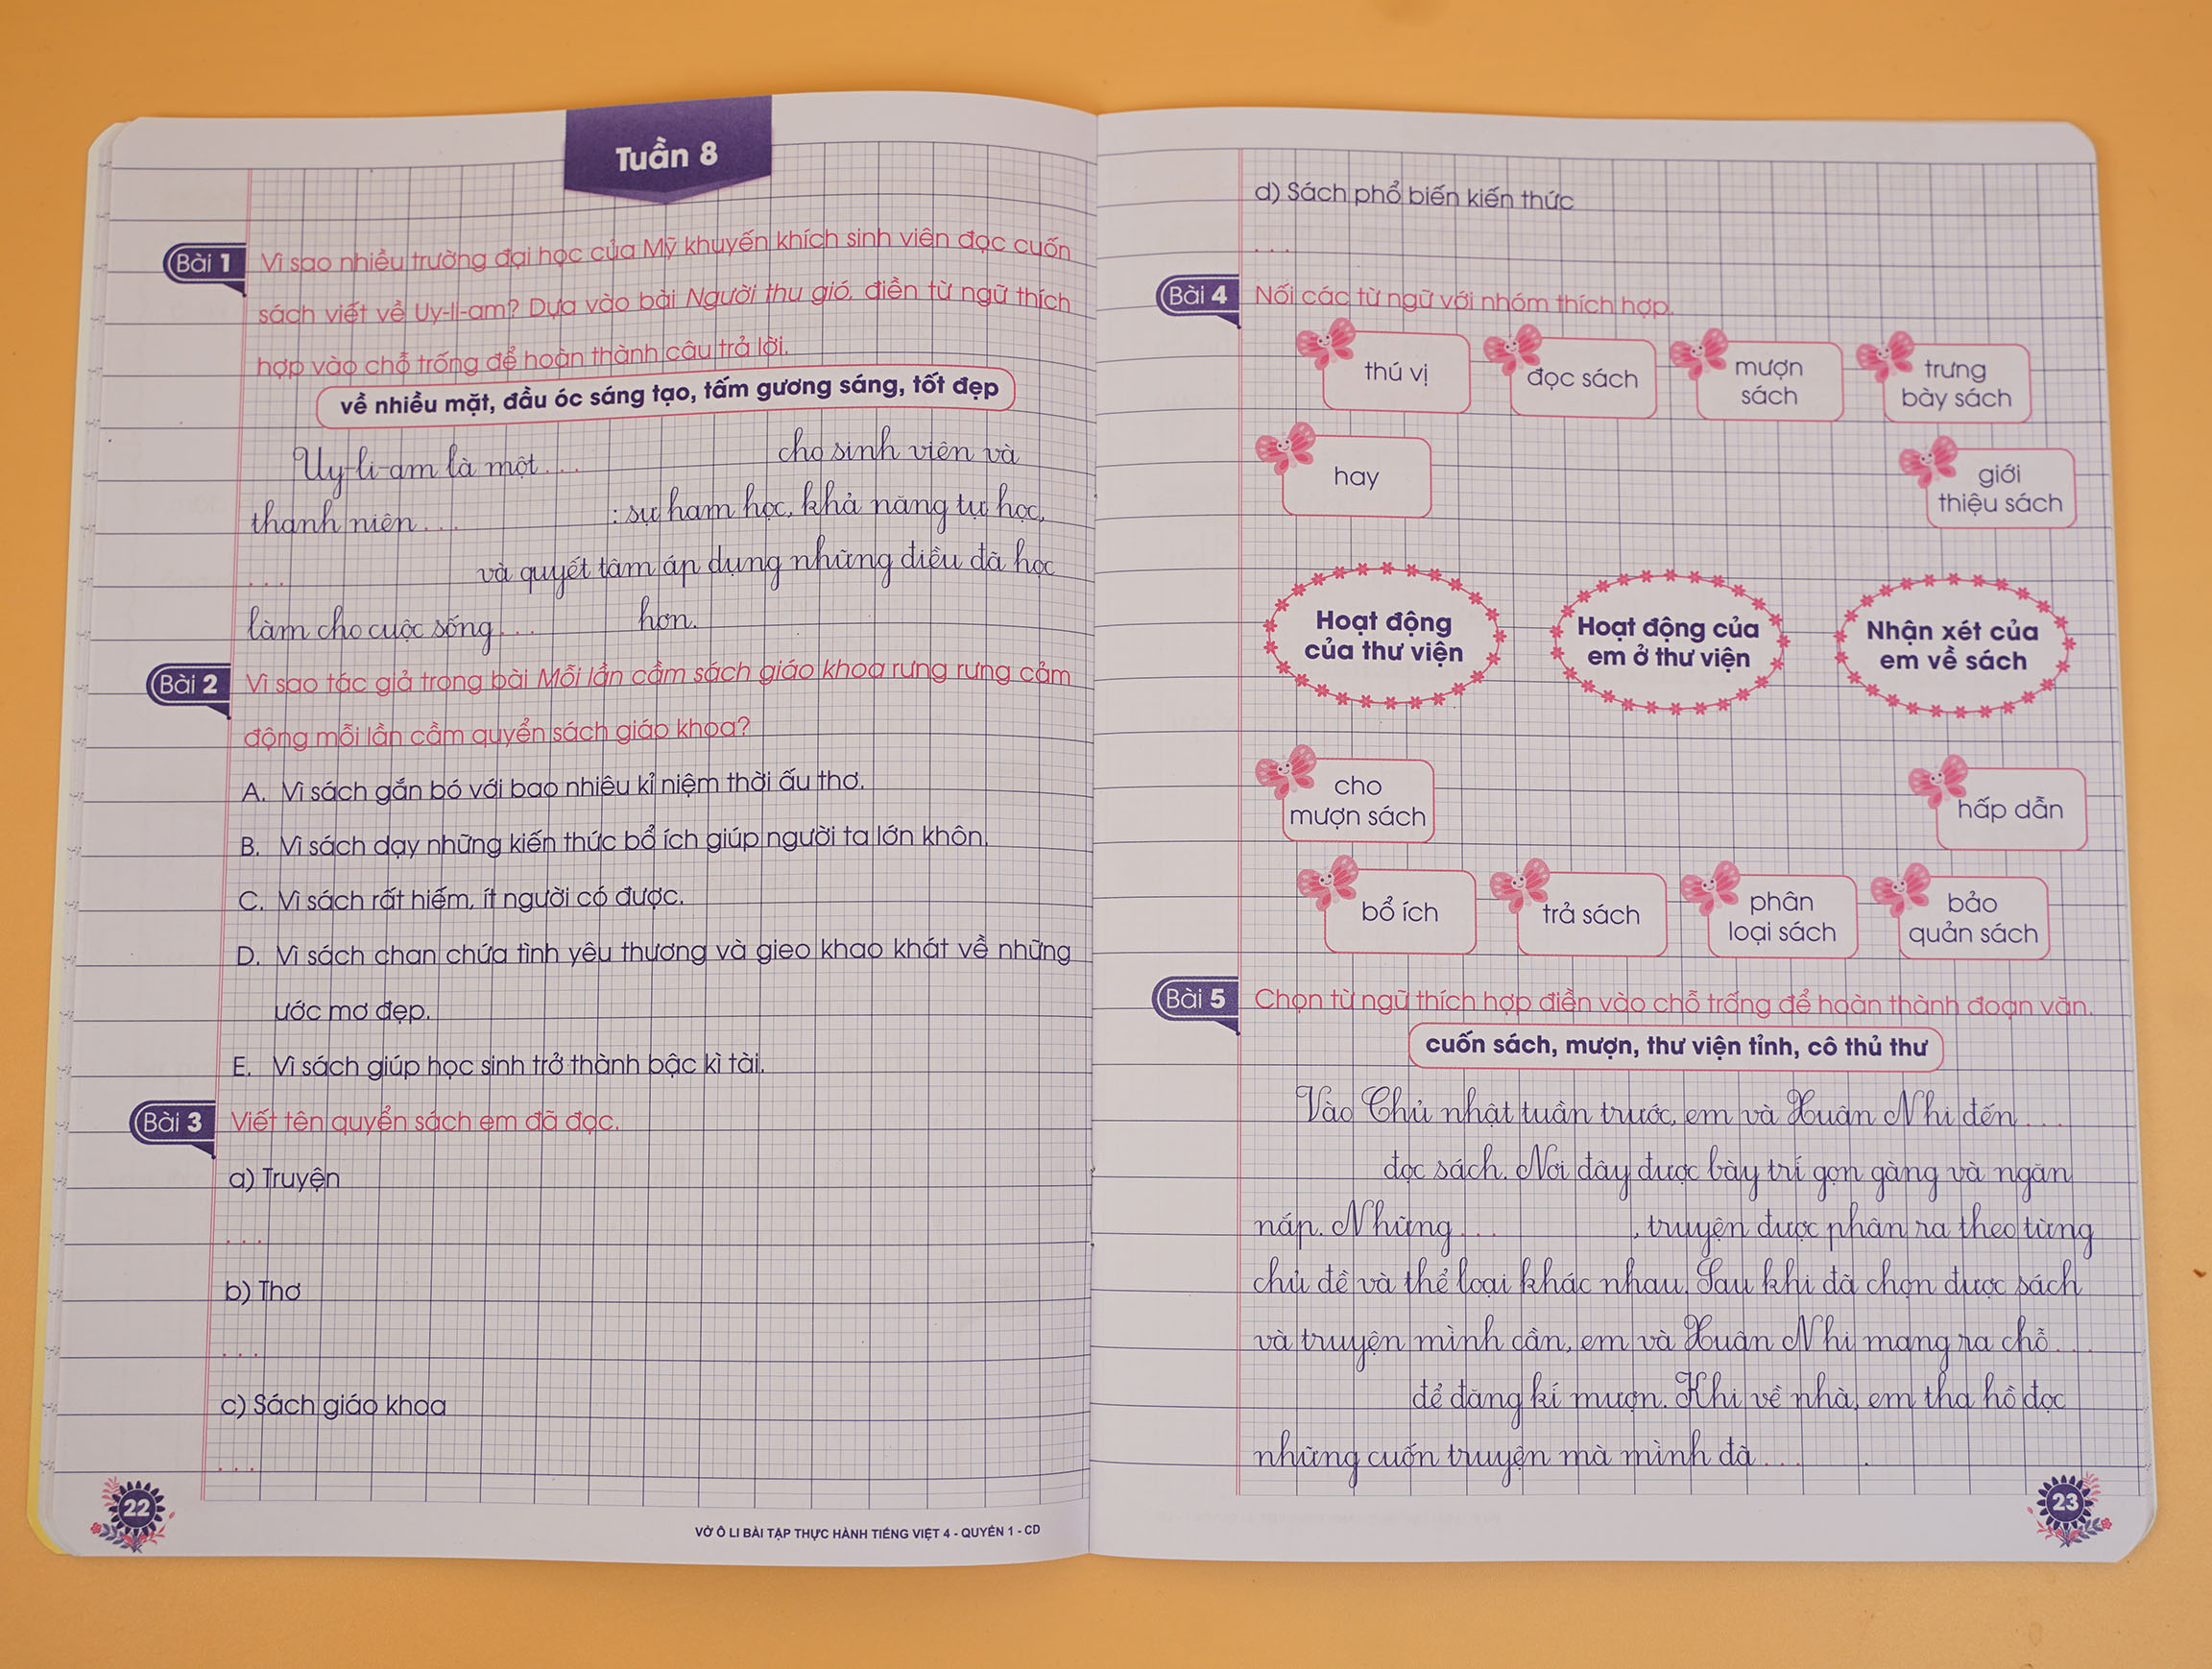 Tuần 8
Bài 1 Vì sao nhiều trường đại học của Mỹ khuyến khích sinh viên đọc cuốn
sách viết về Uy-li-am? Dựa vào bài Người thu gió, điền từ ngữ thích
hợp vào chỗ trống để hoàn thành câu trả lời.
về nhiều mặt, đầu óc sáng tạo, tấm gương sáng, tốt đẹp
Uy-li-am là một ... cho sinh viên và
thanh niên ... : sự ham học, khả năng tự học,
... và quyết tâm áp dụng những điều đã học
làm cho cuộc sống ... hơn.
Bài 2 Vì sao tác giả trong bài Mỗi lần cầm sách giáo khoa rưng rưng cảm
động mỗi lần cầm quyển sách giáo khoa?
A. Vì sách gắn bó với bao nhiêu kỉ niệm thời ấu thơ.
B. Vì sách dạy những kiến thức bổ ích giúp người ta lớn khôn.
C. Vì sách rất hiếm, ít người có được.
D. Vì sách chan chứa tình yêu thương và gieo khao khát về những
ước mơ đẹp.
E. Vì sách giúp học sinh trở thành bậc kì tài.
Bài 3 Viết tên quyển sách em đã đọc.
a) Truyện
...
b) Thơ
...
c) Sách giáo khoa
...
22
VỞ Ô LI BÀI TẬP THỰC HÀNH TIẾNG VIỆT 4 - QUYỂN 1 - CD
d) Sách phổ biến kiến thức
...
Bài 4 Nối các từ ngữ với nhóm thích hợp.
thú vị
đọc sách
mượn
sách
trưng
bày sách
hay
giới
thiệu sách
Hoạt động
của thư viện
Hoạt động của
em ở thư viện
Nhận xét của
em về sách
cho
mượn sách
hấp dẫn
bổ ích
trả sách
phân
loại sách
bảo
quản sách
Bài 5 Chọn từ ngữ thích hợp điền vào chỗ trống để hoàn thành đoạn văn.
cuốn sách, mượn, thư viện tỉnh, cô thủ thư
Vào Chủ nhật tuần trước, em và Xuân Nhi đến ...
đọc sách. Nơi đây được bày trí gọn gàng và ngăn
nắp. Những ... , truyện được phân ra theo từng
chủ đề và thể loại khác nhau. Sau khi đã chọn được sách
và truyện mình cần, em và Xuân Nhi mang ra chỗ ...
để đăng kí mượn. Khi về nhà, em tha hồ đọc
những cuốn truyện mà mình đã ... .
23